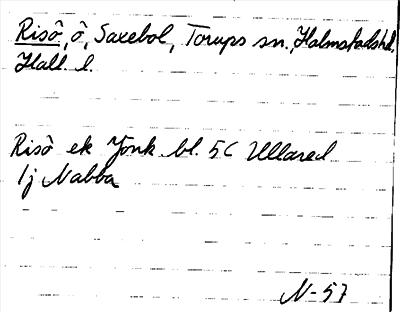 Risö, ö, Saxebol, Torups sn, Halmstadshd.
Hall. l.
Risö ek Jönk. bl. 5C Ullared
1j Nabba
N-57